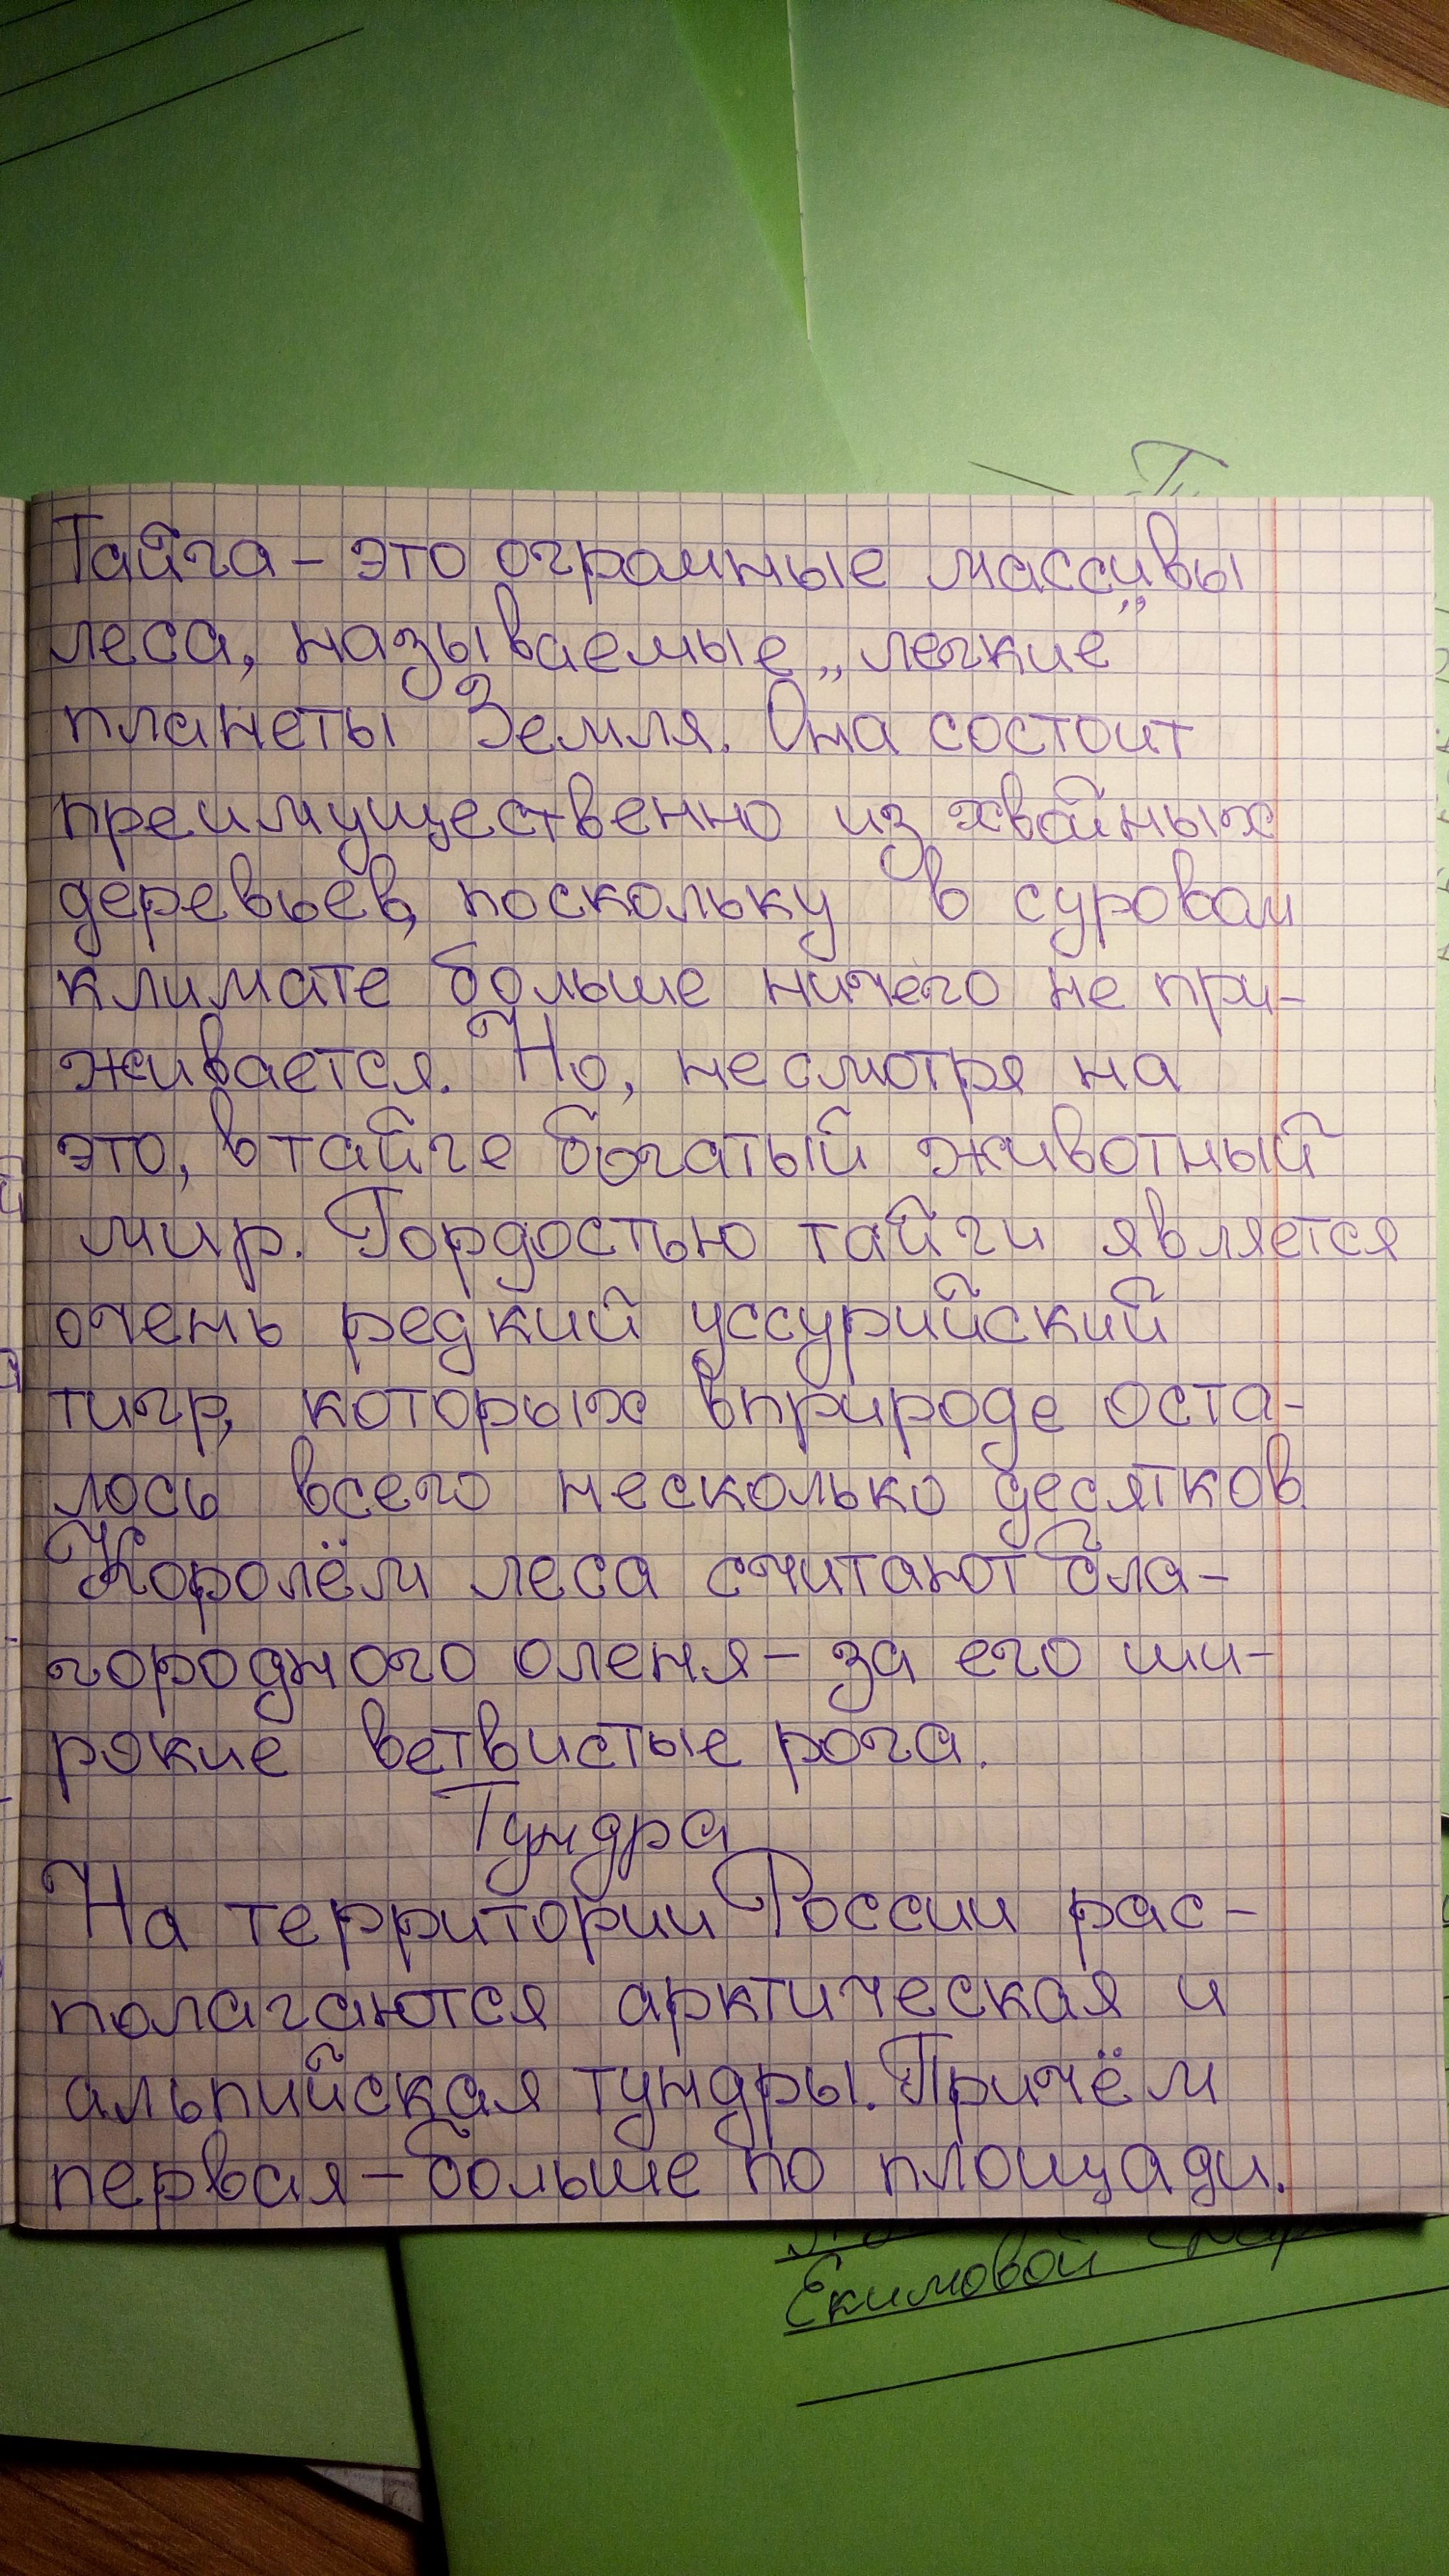 Тайга – это огромные массивы
леса, называемые „легкие”
планеты Земля. Она состоит
преимущественно из хвойных
деревьев, поскольку в суровом
климате больше ничего не при-
живается. Но, несмотря на
это, в тайге богатый животный
мир. Гордостью тайги является
очень редкий уссурийский
тигр, которых в природе оста-
лось всего несколько десятков.
Королём леса считают бла-
городного оленя – за его ши-
рокие ветвистые рога.
Тундра
На территории России рас-
полагаются арктическая и
альпийская тундры. Причём
первая – больше по площади.
Екимовой